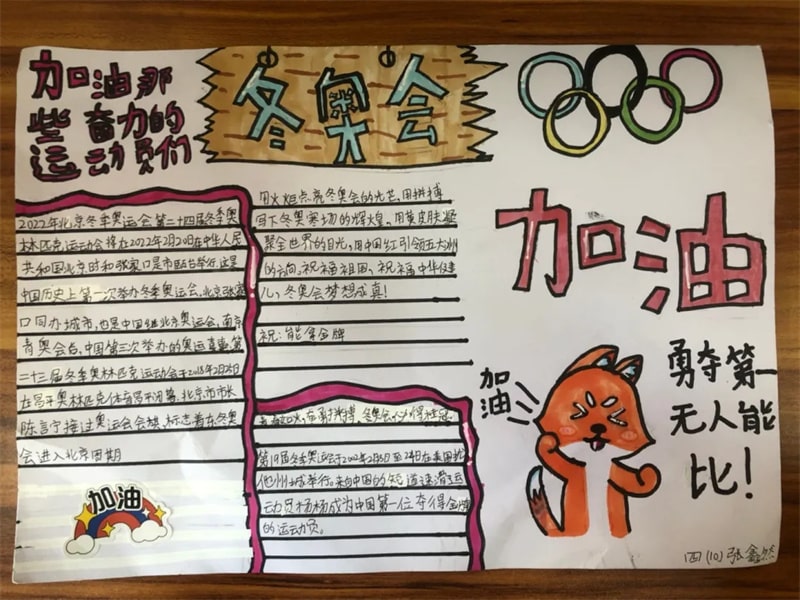 加油那
些奋力的
运动员们
冬奥会
2022年北京冬季奥运会第二十四届冬季奥
林匹克运动会将在2022年2月20日在中华人民
共和国北京市和张家口是市联合举行.这是
中国历史上第一次举办冬季奥运会,北京张家
口同办城市,也是中国继北京奥运会,南京
青奥会后,中国第三次举办的奥运赛事.第
二十三届冬季奥林匹克运动会于2018年2月25日
在平昌奥林匹克体育场
北京市市长
陈吉宁接过奥运会会旗,标志着冬奥
会进入北京周期
加油
用火炬点亮冬奥会的光芒,用拼搏
写下冬奥赛场的辉煌,用黄皮肤凝
聚全世界的目光,用中国红引领五大洲
的方向,祝福祖国,祝福中华健
儿,冬奥会梦想成真!
祝:能拿金牌
第19届冬季奥运会于2002年2月8日至24日在美国
城举行.来自中国的短道速滑运
动员杨杨成为中国第一位夺得金牌
的运动员。
加油
加油
勇夺第一
无人能
比!
四(10)张鑫然